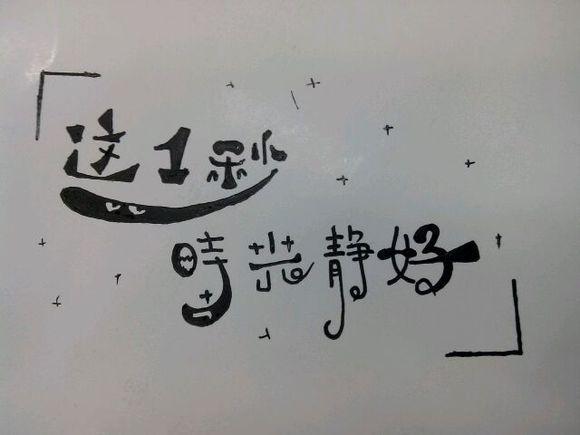 这1秒
時光静好